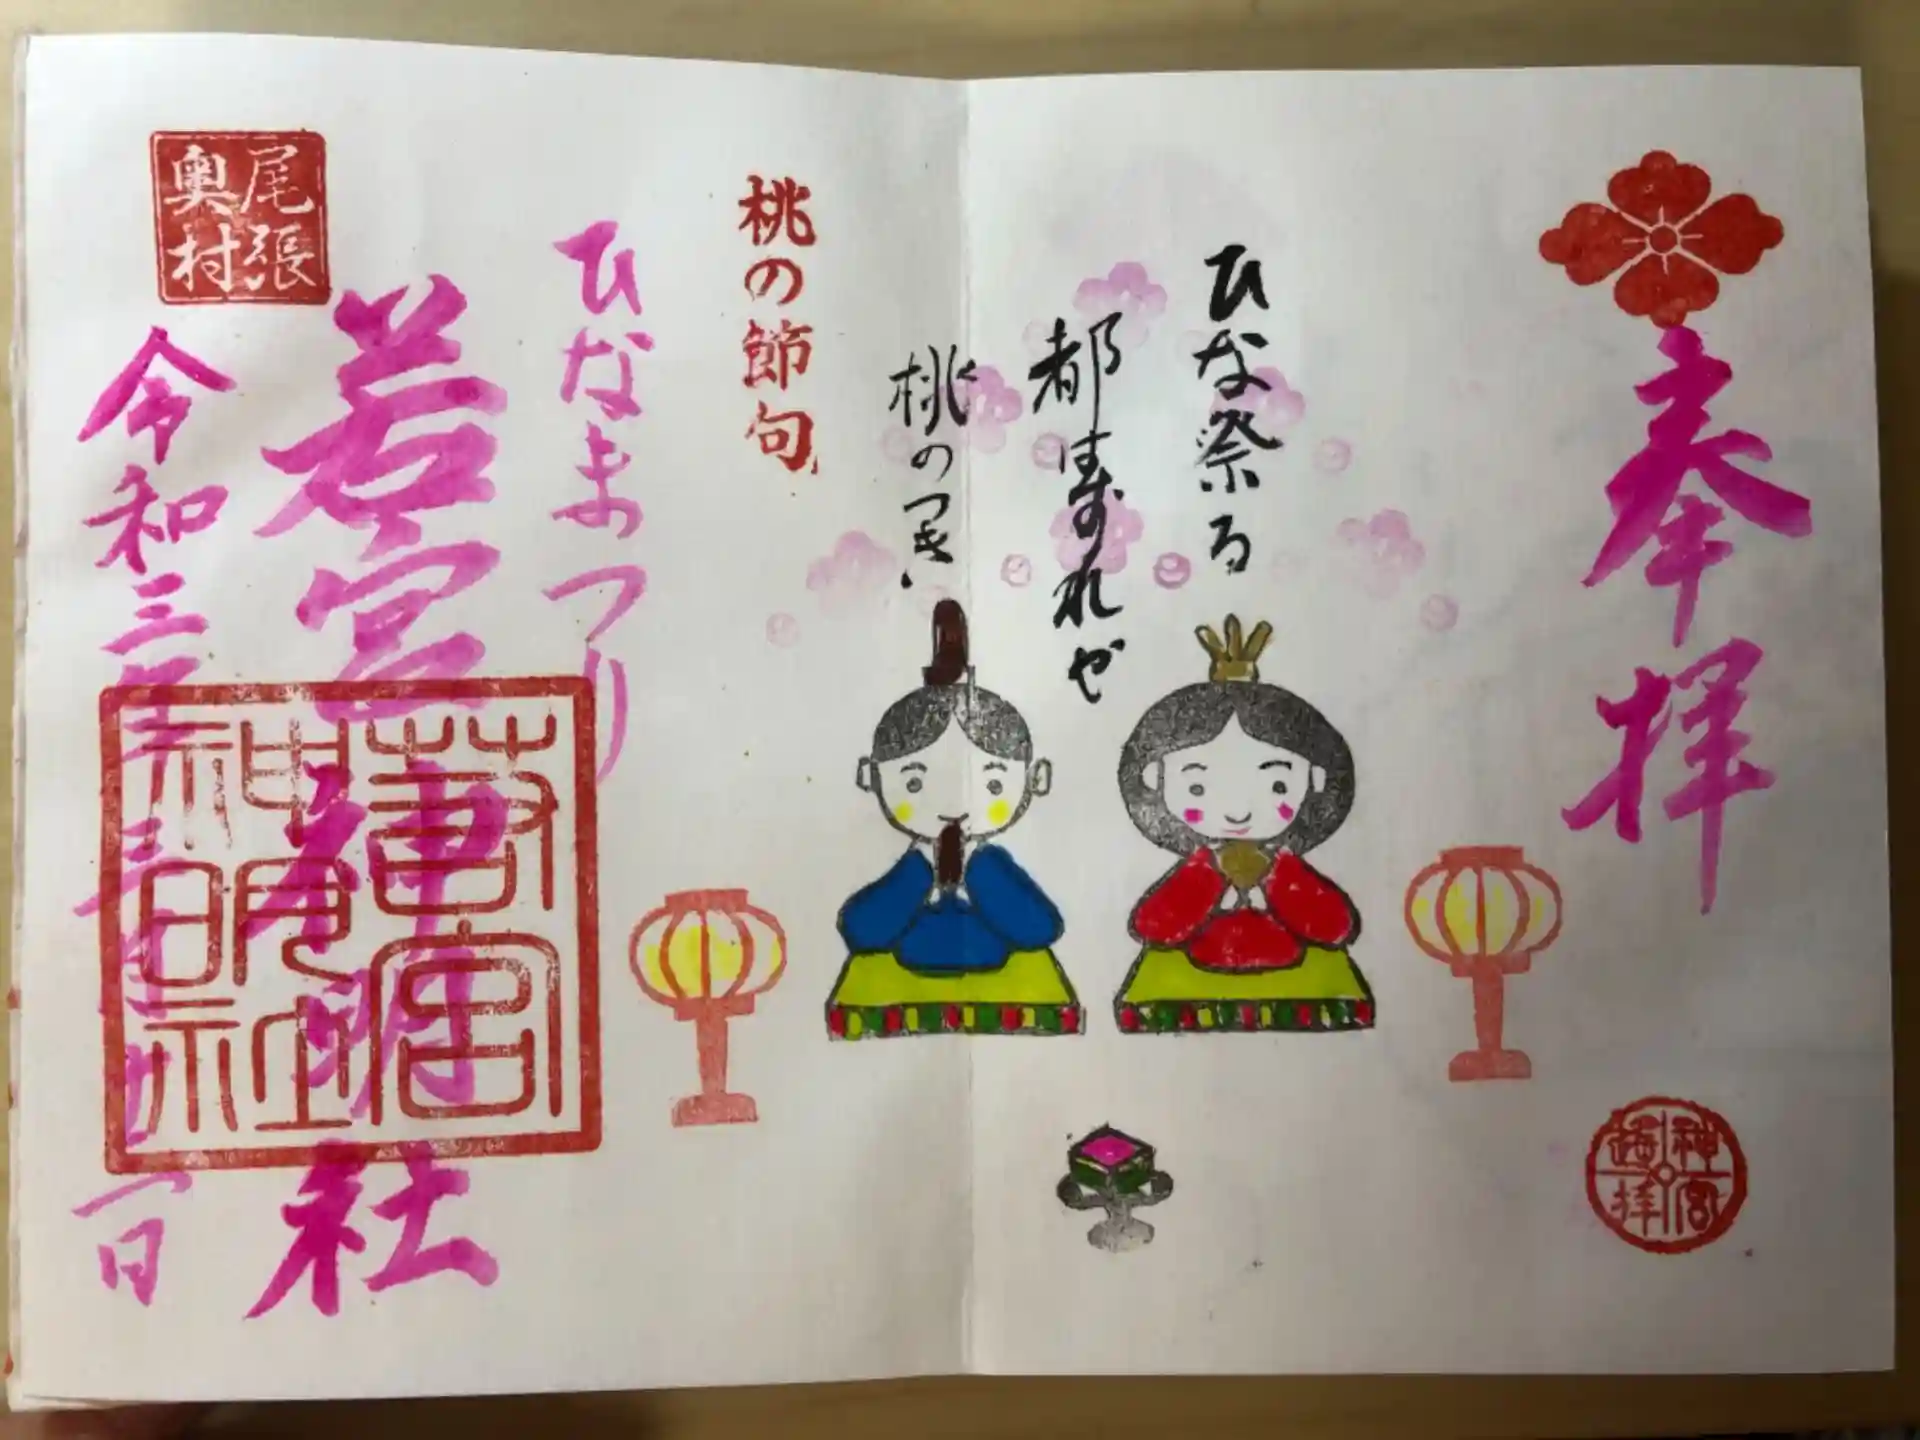 奉拝
神宮
遥拝
ひな祭る
都はずれや
桃のつき
桃の節句
ひなまつり
若宮神明社
若宮
神明社
尾張
奥村
令和三年三月 一日